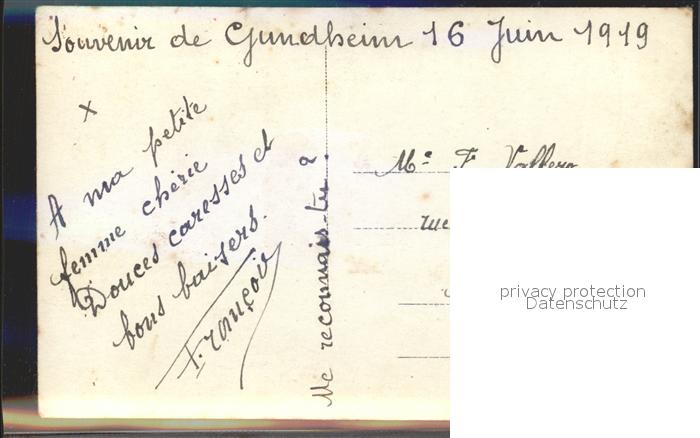 Souvenir de Gundheim 16 Juin 1919
x
A ma petite
femme chérie
Douces caresses et
bons baisers.
François
Me reconnais-tu ?
Me F.
rue
privacy protection
Datenschutz